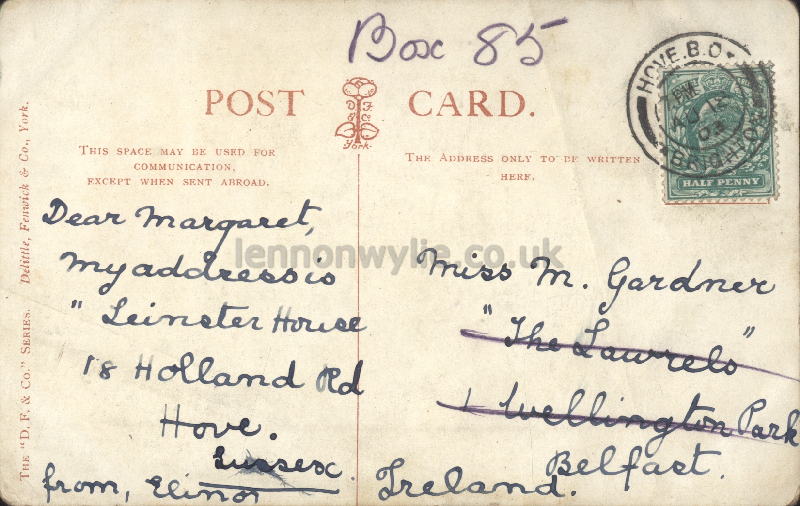 Box 85
POST CARD.
THIS SPACE MAY BE USED FOR
COMMUNICATION,
EXCEPT WHEN SENT ABROAD.
THE ADDRESS ONLY TO BE WRITTEN
HERE.
D. F.
& Co.
York.
HOVE. B.O.
BRIGHTON
HALF PENNY
THE "D. F. & Co." SERIES. Delittle, Fenwick & Co., York.
Dear Margaret,
my address is
" Leinster House
18 Holland Rd
Hove.
Sussex.
from, Elinor
Miss M. Gardner
"The Lawrels"
1 Wellington Park
Belfast.
Ireland.
lennonwylie.co.uk